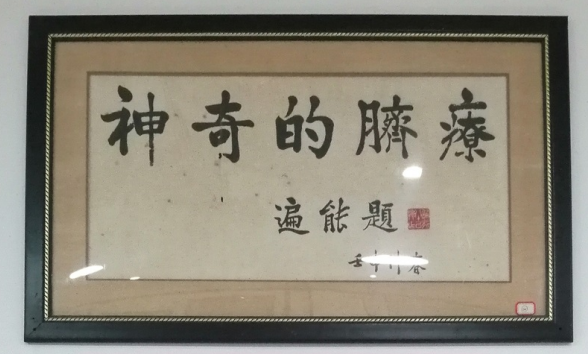 神奇的臍療
遍能題
壬申
春